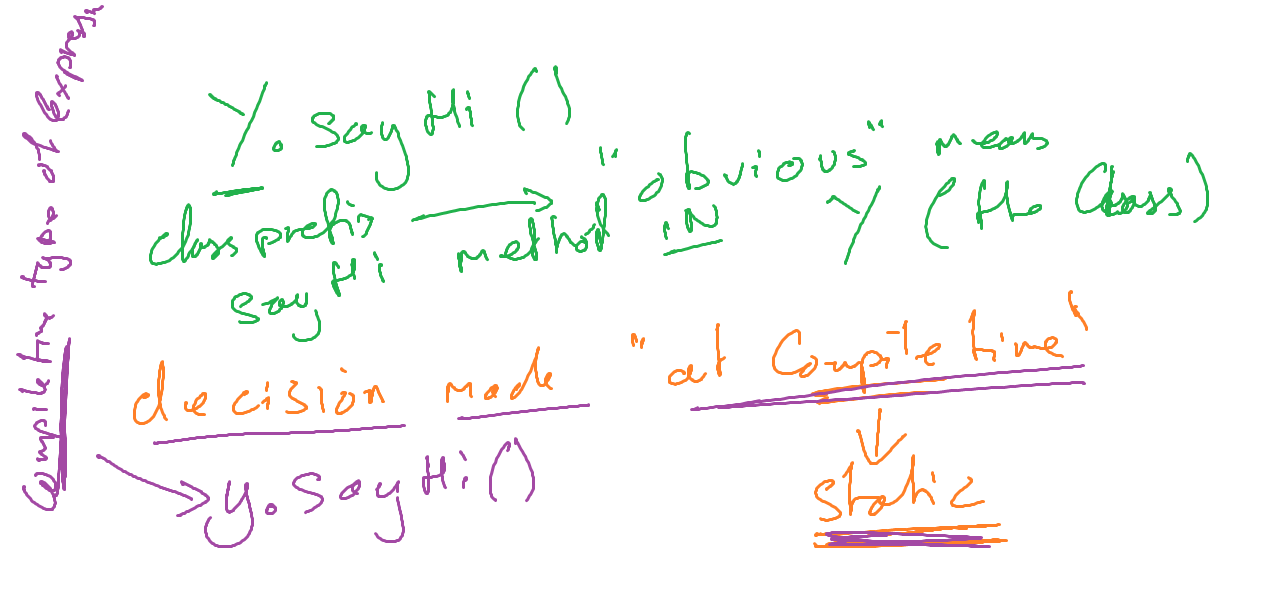 Compile time type of express
Y. Say Hi ()
class prefix → method "obvious" means
say Hi IN Y (the Class)
decision made "at Compile time"
static
y. Say Hi ()